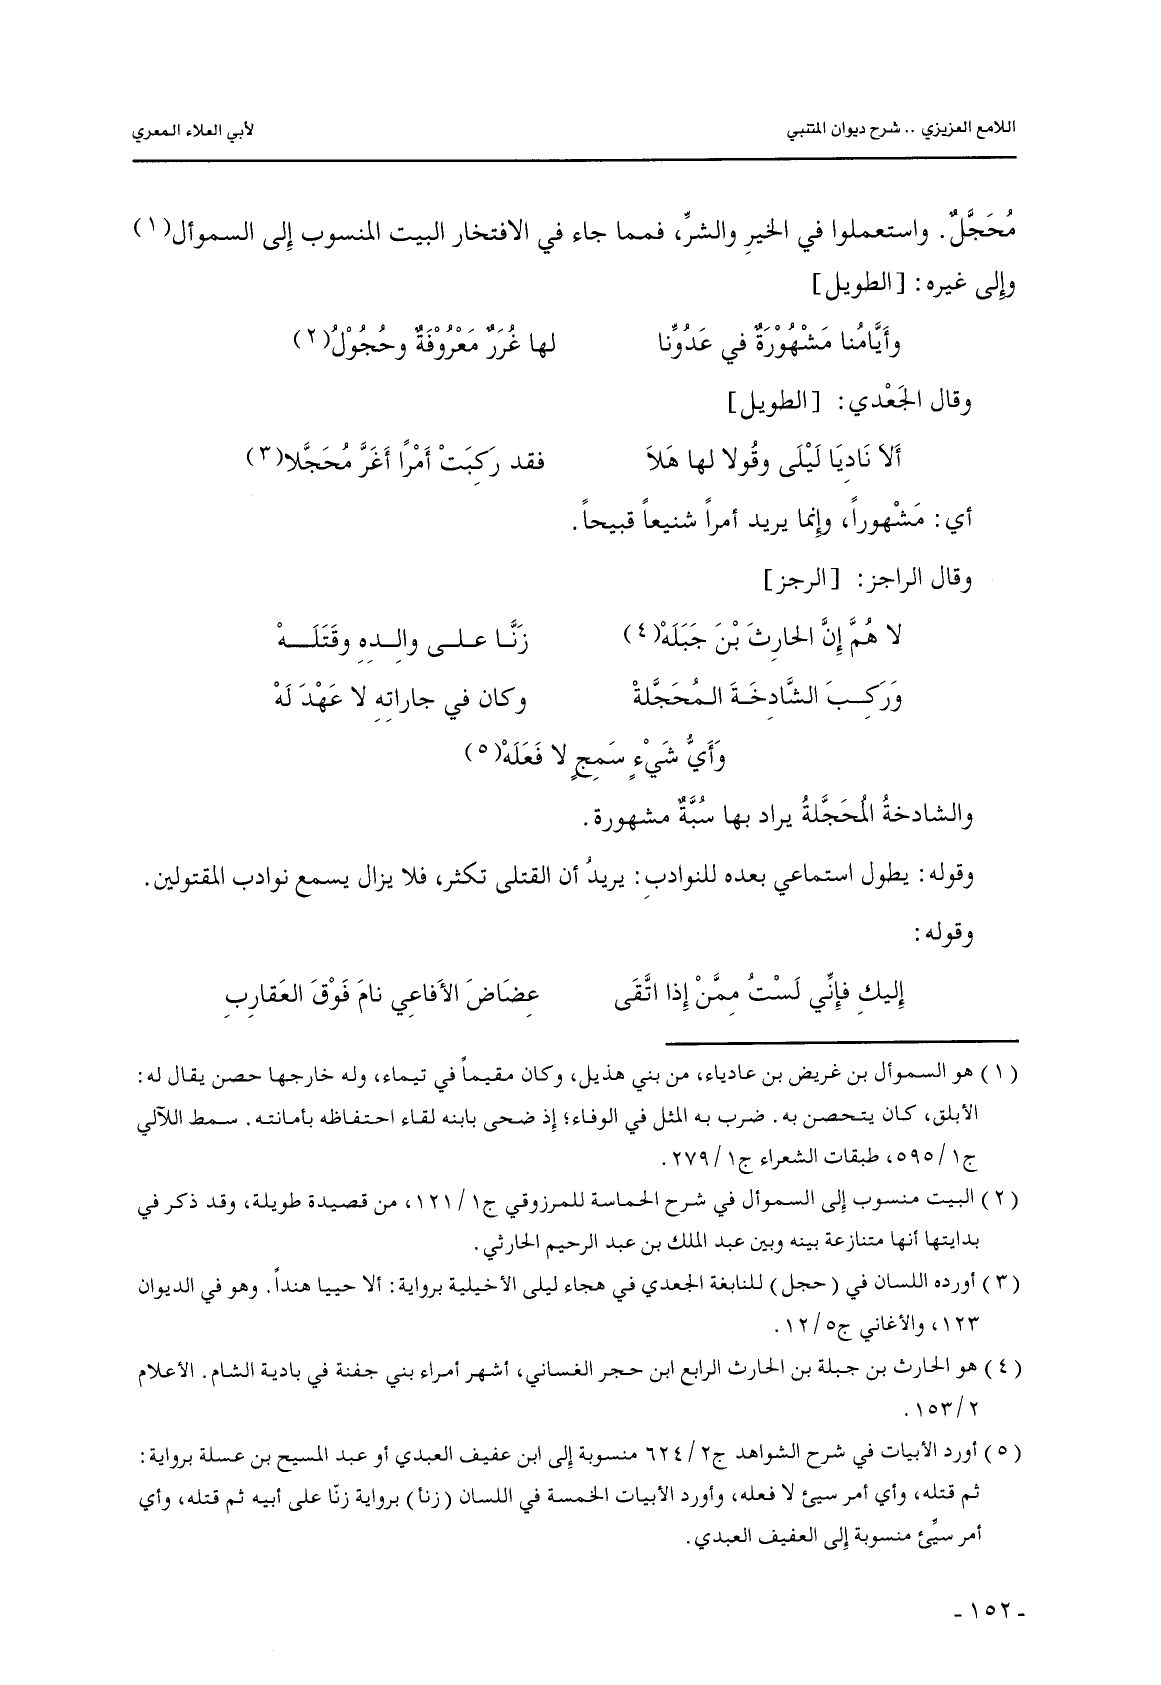 اللامع العزيزي .. شرح ديوان المتنبي لأبي العلاء المعري
مُحَجَّلٌ. واستعملوا في الخيرِ والشرِّ، فمما جاء في الافتخار البيت المنسوب إلى السموأل(١)
وإلى غيره: [الطويل]
وأَيَّامُنا مَشْهُوْرَةٌ في عَدُوِّنا لها غُرَرٌ مَعْرُوْفَةٌ وحُجُوْلُ(٢)
وقال الجَعْدي: [الطويل]
أَلاَ نَادِيَا لَيْلَى وقُولا لها هَلاَ فقد رَكِبَتْ أَمْرًا أَغَرَّ مُحَجَّلا(٣)
أي: مَشْهوراً، وإنما يريد أمراً شنيعاً قبيحاً.
وقال الراجز: [الرجز]
لا هُمَّ إِنَّ الحارِثَ بْنَ جَبَلَهْ(٤) زَنَّا على والِدِهِ وقَتَلَهْ
وَرَكِبَ الشَّادِخَةَ المُحَجَّلةْ وكان في جاراتِهِ لا عَهْدَ لَهْ
وَأَيُّ شَيْءٍ سَمِجٍ لا فَعَلَهْ(٥)
والشادخةُ المُحَجَّلةُ يراد بها سُبَّةٌ مشهورة.
وقوله: يطول استماعي بعده للنوادبِ: يريدُ أن القتلى تكثر، فلا يزال يسمع نوادب المقتولين.
وقوله:
إِليكِ فإِنِّي لَسْتُ مِمَّنْ إِذا اتَّقَى عِضَاضَ الأَفاعِي نامَ فَوْقَ العَقارِبِ
(١) هو السموأل بن غريض بن عادياء، من بني هذيل، وكان مقيماً في تيماء، وله خارجها حصن يقال له:
الأبلق، كان يتحصن به. ضرب به المثل في الوفاء؛ إذ ضحى بابنه لقاء احتفاظه بأمانته. سمط اللآلي
ج١/ ٥٩٥، طبقات الشعراء ج١/ ٢٧٩.
(٢) البيت منسوب إلى السموأل في شرح الحماسة للمرزوقي ج١/ ١٢١، من قصيدة طويلة، وقد ذكر في
بدايتها أنها متنازعة بينه وبين عبد الملك بن عبد الرحيم الحارثي.
(٣) أورده اللسان في (حجل) للنابغة الجعدي في هجاء ليلى الأخيلية برواية: ألا حييا هنداً. وهو في الديوان
١٢٣، والأغاني ج٥/ ١٢.
(٤) هو الحارث بن جبلة بن الحارث الرابع ابن حجر الغساني، أشهر أمراء بني جفنة في بادية الشام. الأعلام
٢/ ١٥٣.
(٥) أورد الأبيات في شرح الشواهد ج٢/ ٦٢٤ منسوبة إلى ابن عفيف العبدي أو عبد المسيح بن عسلة برواية:
ثم قتله، وأي أمر سيئ لا فعله، وأورد الأبيات الخمسة في اللسان (زنأ) برواية زنّا على أبيه ثم قتله، وأي
أمر سيِّئ منسوبة إلى العفيف العبدي.
- ١٥٢ -